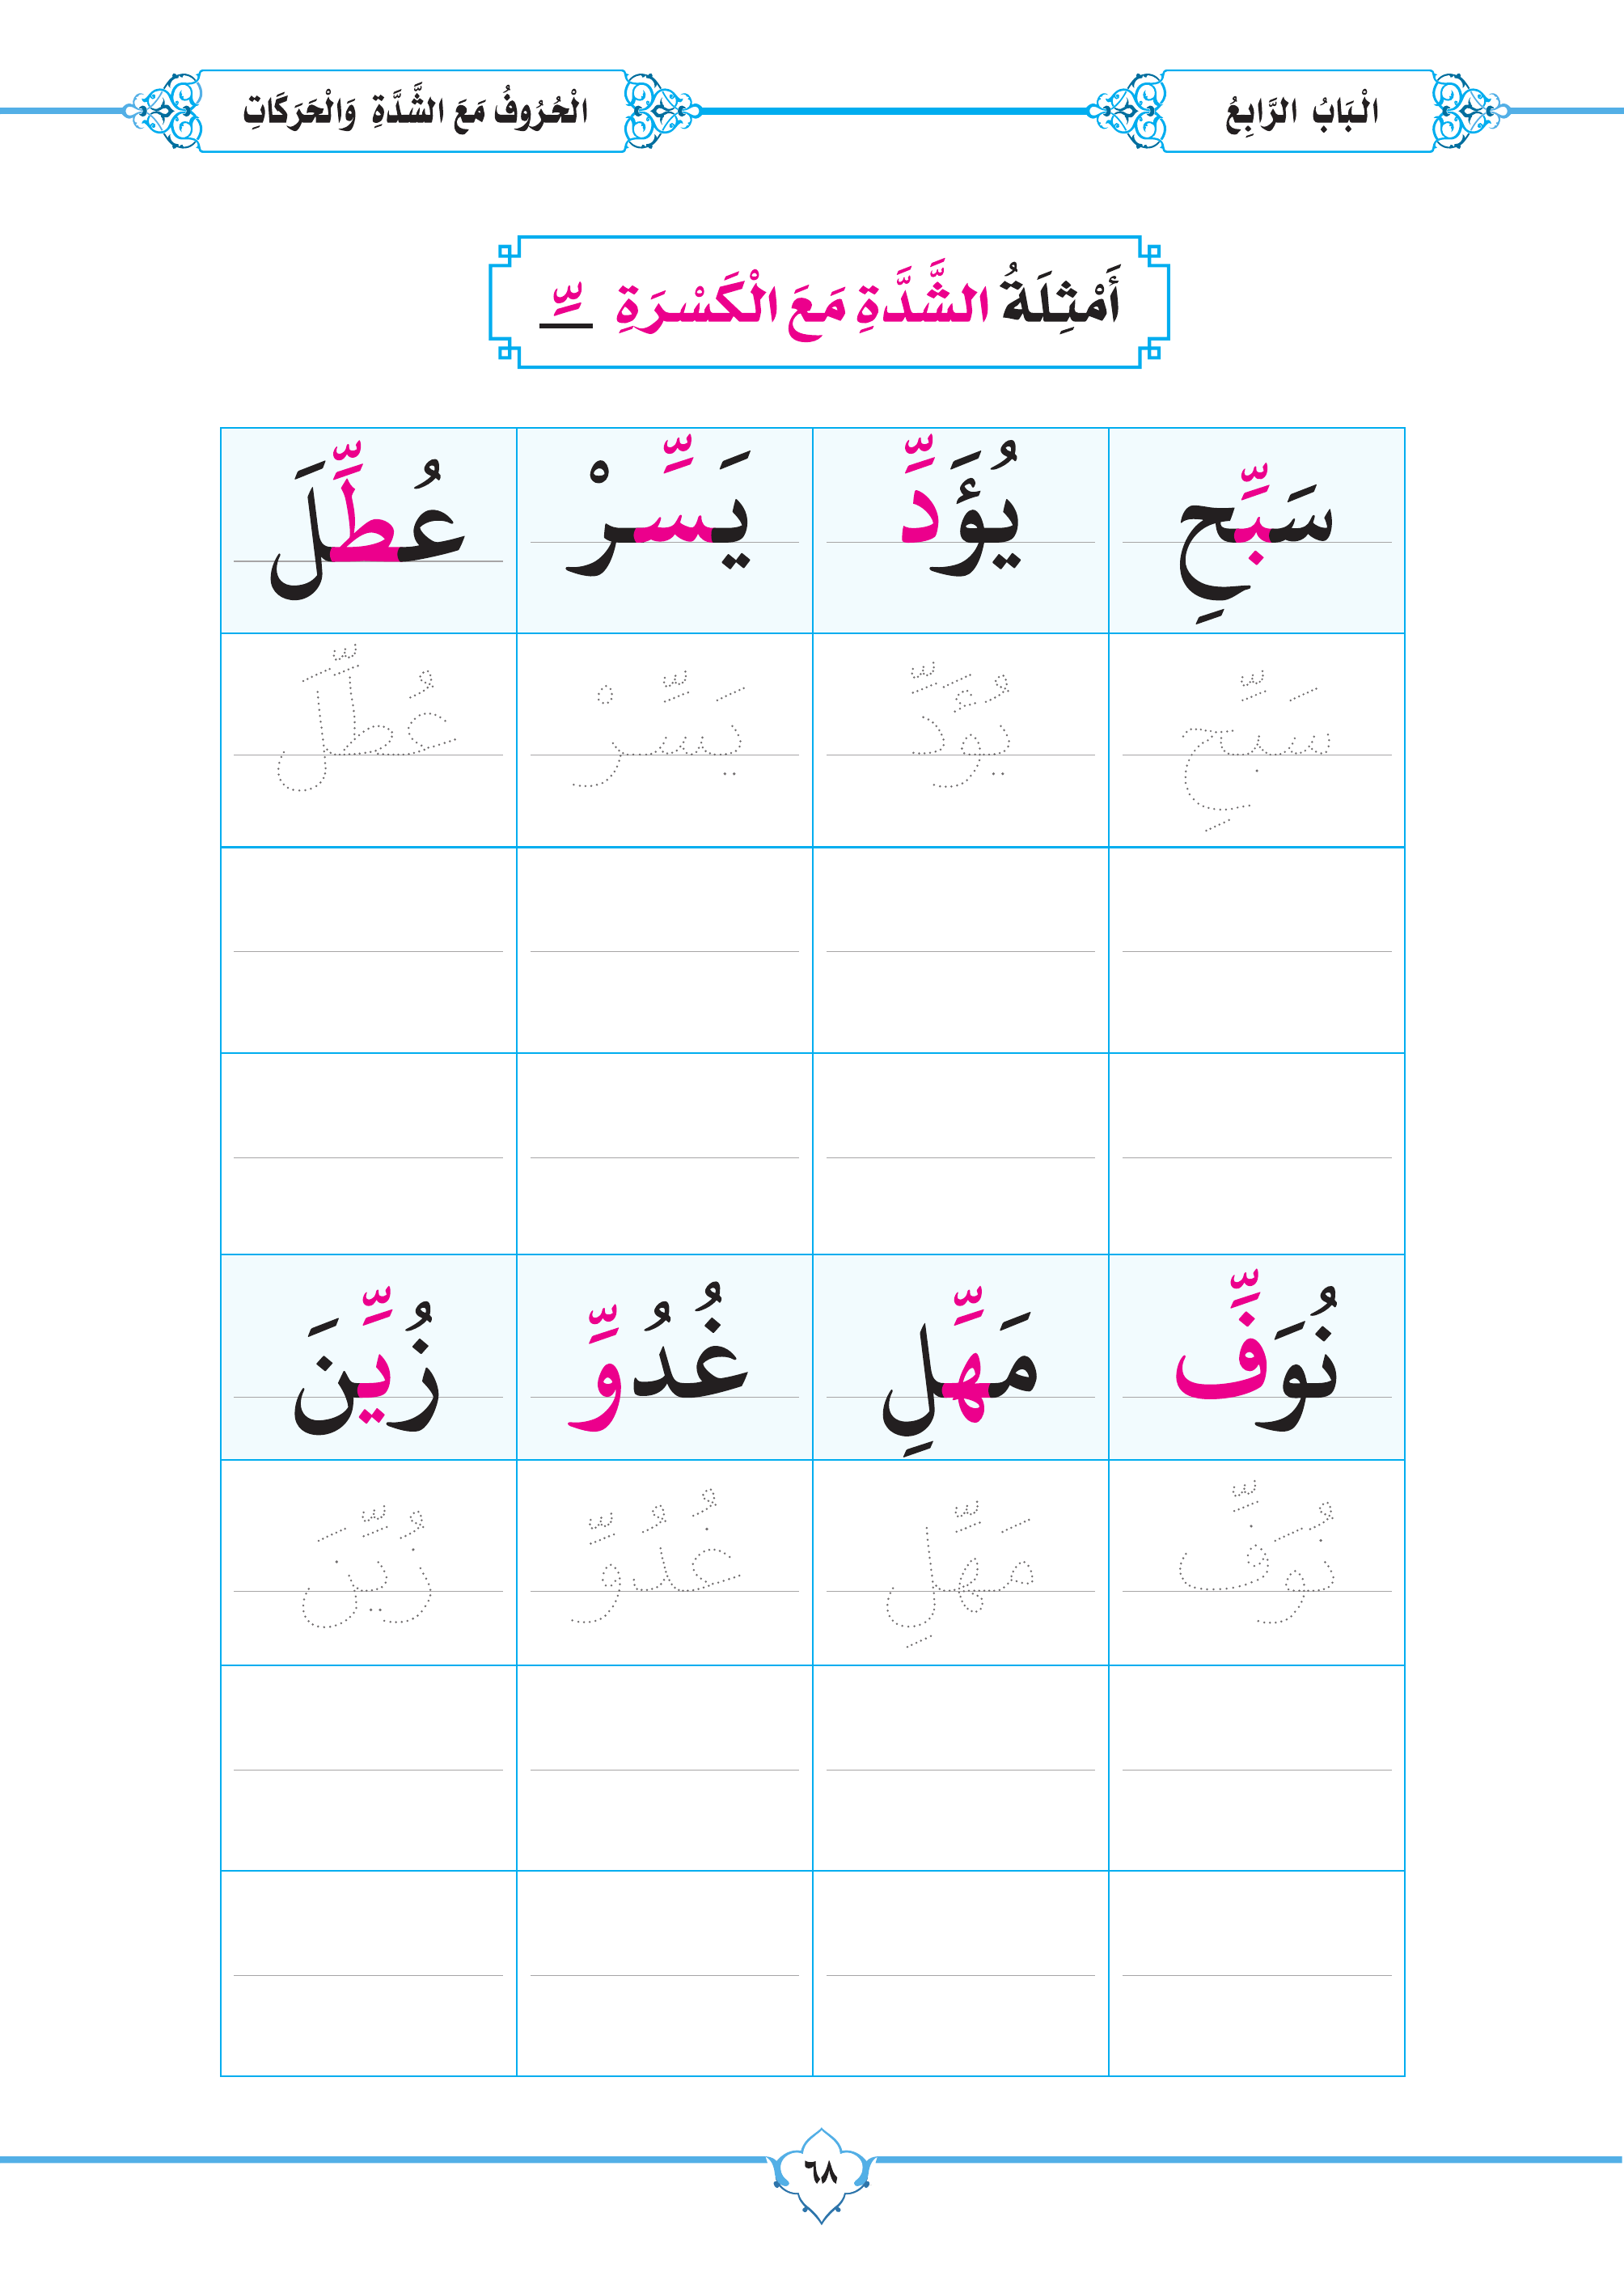 الْبَابُ الرَّابِعُ
الْحُرُوفُ مَعَ الشَّدَّةِ وَالْحَرَكَاتِ
أَمْثِلَةُ الشَّدَّةِ مَعَ الْكَسْرَةِ ـِّ
سَبِّحِ يُؤَدِّ يَسِّرْ عُطِّلَ
سَبِّحِ يُؤَدِّ يَسِّرْ عُطِّلَ
نُوَفِّ مَهِّلِ غُدُوِّ زُيِّنَ
نُوَفِّ مَهِّلِ غُدُوِّ زُيِّنَ
٦٨